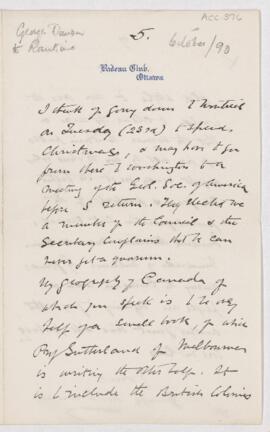 ACC-576
George Dawson
to Rankine
5.
October/90
Rideau Club,
Ottawa
I think of going down to Montreal
on Tuesday (23rd) to spend
Christmas, & may have to go
from there to Washington to a
meeting of the Geol. Soc. of America
before I return. They elected me
a member of the Council & the
Secretary complains that he can
never get a quorum.
My geography of Canada of
which you speak is to be only
half of a small book, of which
Prof Sutherland of Melbourne
is writing the other half. It
is to include the British Colonies